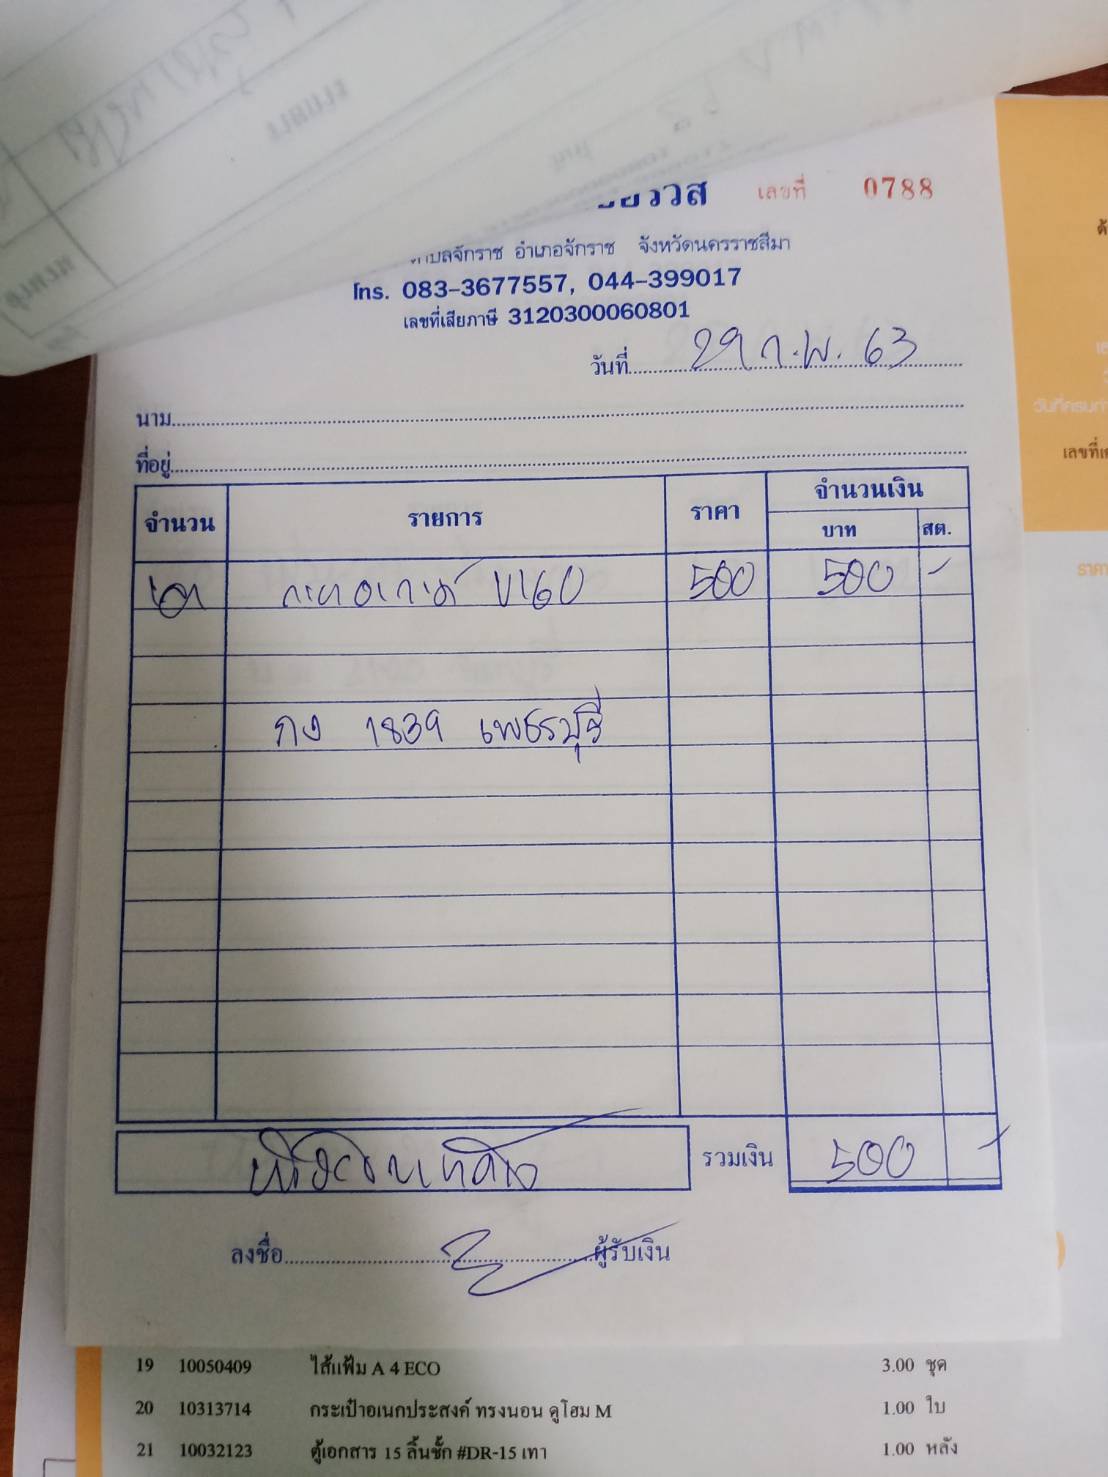 เลขที่ 0788
อำเภอจักราช จังหวัดนครราชสีมา
โทร. 083-3677557, 044-399017
เลขที่เสียภาษี 3120300060801
วันที่ 29 ก.พ. 63
นาม
ที่อยู่
จำนวน รายการ ราคา จำนวนเงิน
บาท สต.
VIGO 500 500 -
กง 1839 เพชรบุรี
ห้าร้อยบาทถ้วน รวมเงิน 500 -
ลงชื่อ ผู้รับเงิน
19 10050409 ไส้แฟ้ม A 4 ECO 3.00 ชุด
20 10313714 กระเป๋าอเนกประสงค์ ทรงนอน ดูโฮม M 1.00 ใบ
21 10032123 ตู้เอกสาร 15 ลิ้นชัก #DR-15 เทา 1.00 หลัง